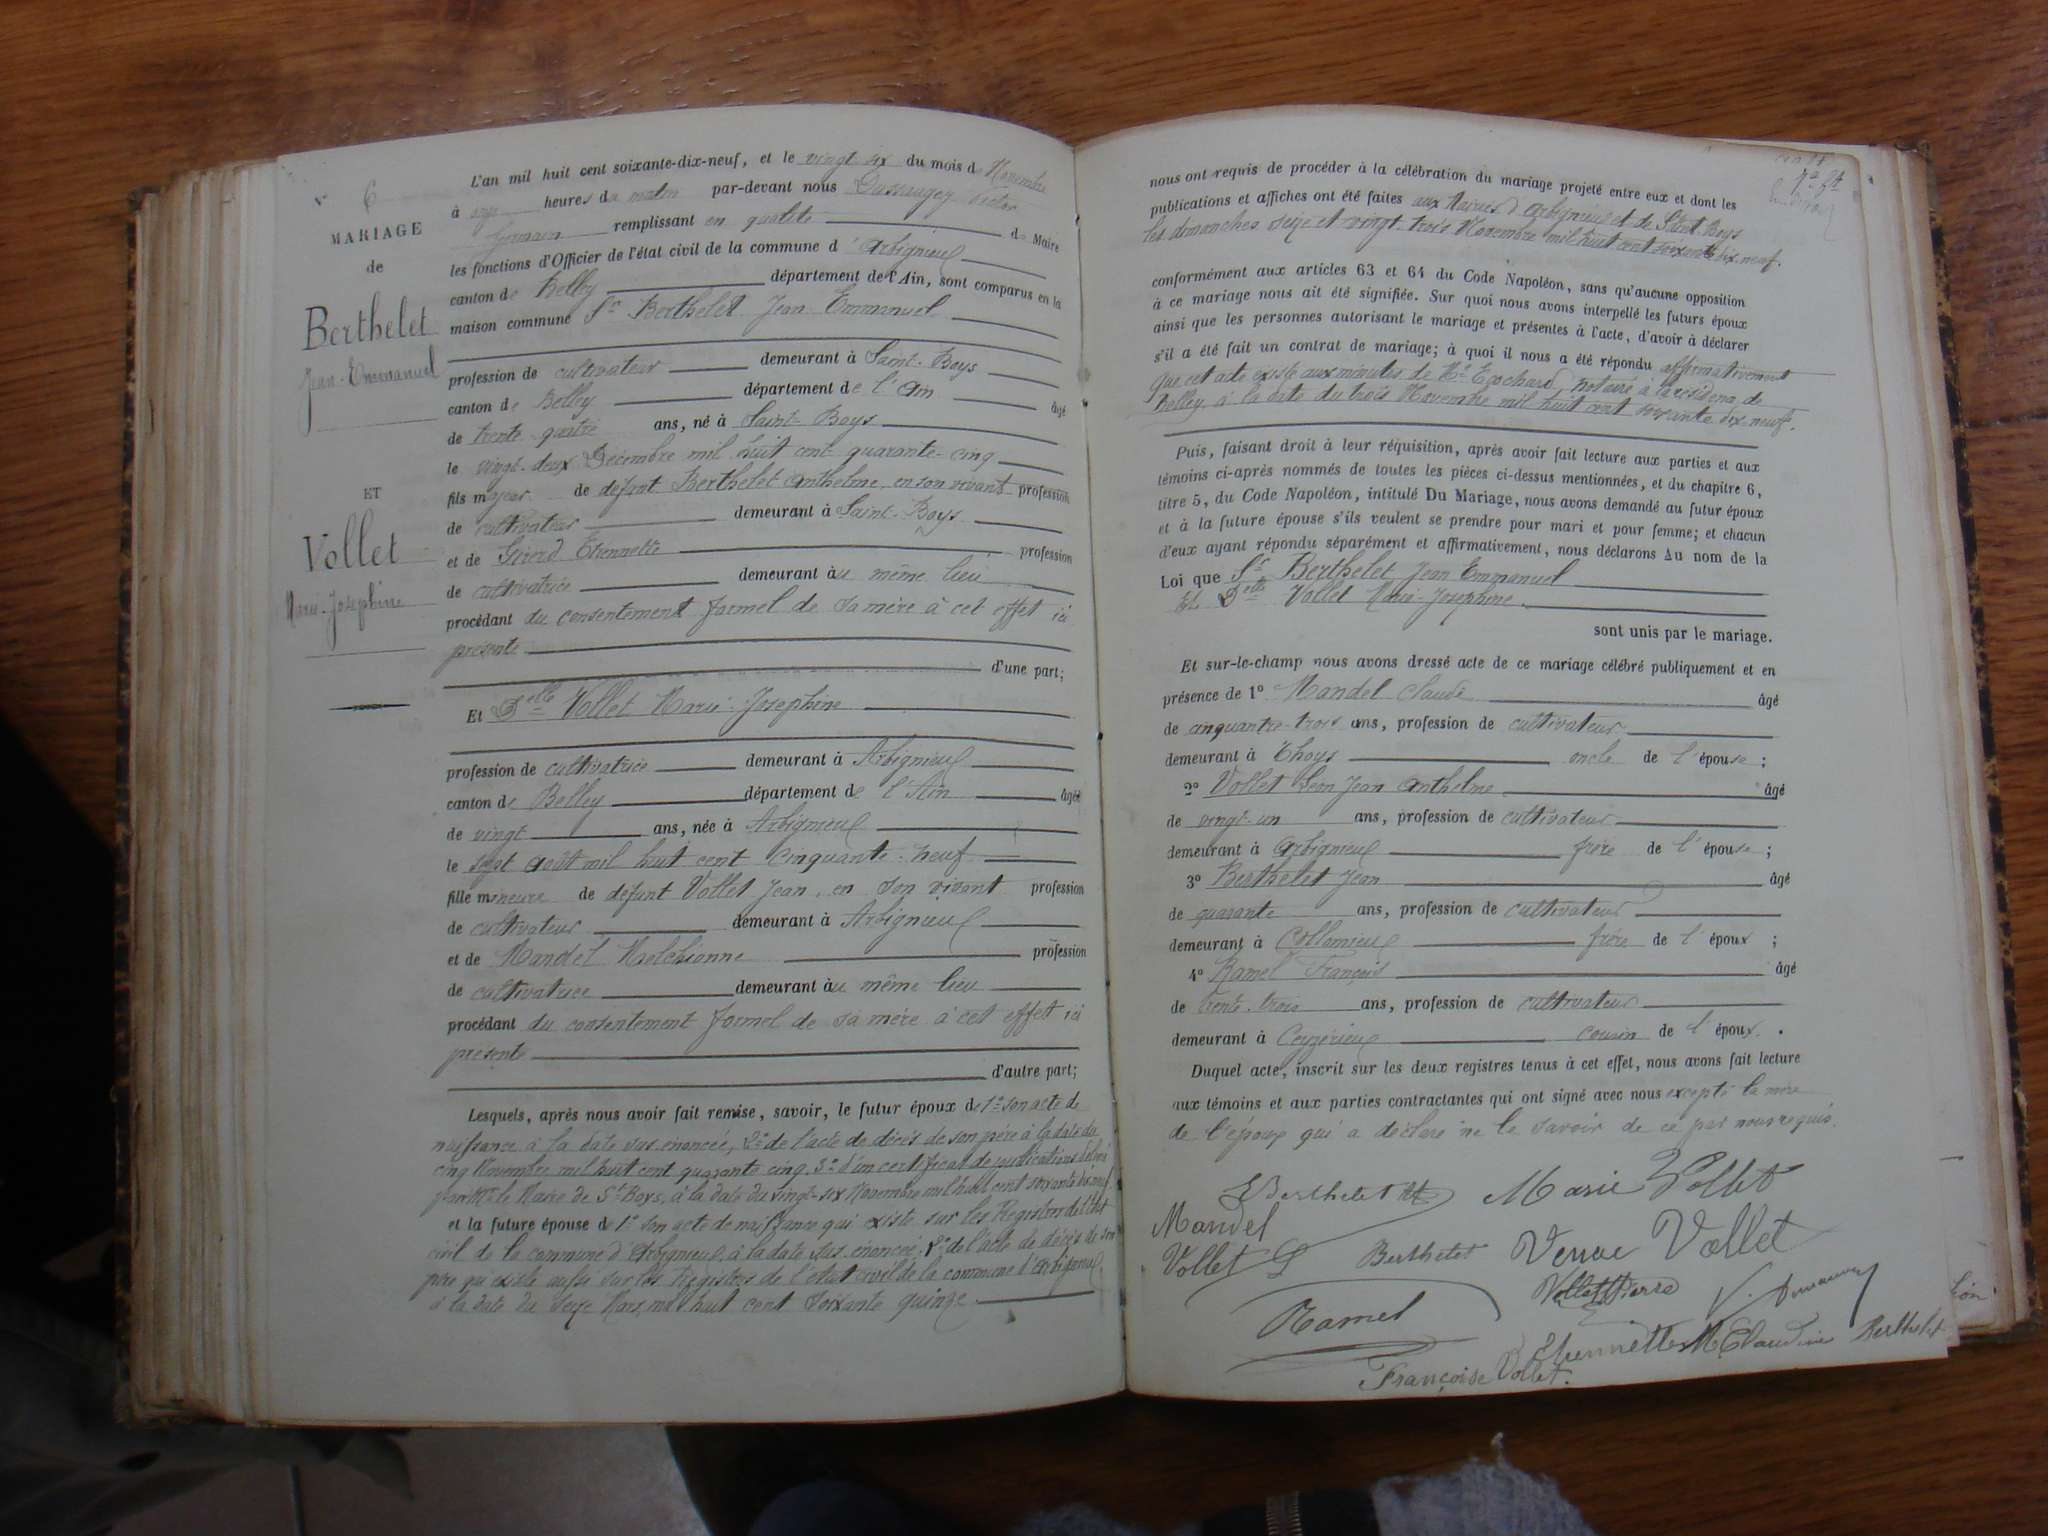 N° 6
MARIAGE
de
Berthelet
Jean-Emmanuel
ET
Vollet
Marie-Josephine
L'an mil huit cent soixante-dix-neuf, et le vingt six du mois de Novembre
à onze heures du matin par-devant nous Victor
Germain remplissant en qualité de Maire
les fonctions d'Officier de l'état civil de la commune d'Arbignieu
canton de Belley département de l'Ain, sont comparus en la
maison commune Sr Berthelet Jean Emmanuel
profession de cultivateur demeurant à Saint-Boys
canton de Belley département de l'Ain âgé
de trente quatre ans, né à Saint-Boys
le vingt-deux Décembre mil huit cent quarante-cinq
fils majeur de défunt Berthelet Anthelme en son vivant profession
de cultivateur demeurant à Saint-Boys
et de Girerd Etiennette profession
de cultivatrice demeurant au même lieu
procédant du consentement formel de sa mère à cet effet ici
présente
d'une part;
Et Delle Vollet Marie-Josephine
profession de cultivatrice demeurant à Arbignieu
canton de Belley département de l'Ain âgée
de vingt ans, née à Arbignieu
le sept août mil huit cent cinquante-neuf
fille mineure de défunt Vollet Jean, en son vivant profession
de cultivateur demeurant à Arbignieu
et de Mandel Melchionne profession
de cultivatrice demeurant au même lieu
procédant du consentement formel de sa mère à cet effet ici
présente
d'autre part;
Lesquels, après nous avoir fait remise, savoir, le futur époux de 1° son acte de
naissance à la date sus-énoncée, 2° de l'acte de décès de son père à la date du
cinq Novembre mil huit cent quarante cinq 3° d'un certificat de publications délivré
par Mr le Maire de St Boys, à la date du vingt-six Novembre mil huit cent soixante dix neuf
et la future épouse de 1° son acte de naissance qui existe sur les Registres de l'état
civil de la commune d'Arbignieu, à la date sus-énoncée 2° de l'acte de décès de son
père qui existe aussi sur les Registres de l'état civil de la commune d'Arbignieu
à la date du seize Mars, mil huit cent soixante quinze
nous ont requis de procéder à la célébration du mariage projeté entre eux et dont les
publications et affiches ont été faites aux Mairies d'Arbignieu et de Saint Boys
les dimanches seize et vingt-trois Novembre mil huit cent soixante dix-neuf.
conformément aux articles 63 et 64 du Code Napoléon, sans qu'aucune opposition
à ce mariage nous ait été signifiée. Sur quoi nous avons interpellé les futurs époux
ainsi que les personnes autorisant le mariage et présentes à l'acte, d'avoir à déclarer
s'il a été fait un contrat de mariage; à quoi il nous a été répondu affirmativement
que cet acte existe aux minutes de Me notaire à la residence de
Belley, à la date du trois Novembre mil huit cent soixante dix-neuf.
Puis, faisant droit à leur réquisition, après avoir fait lecture aux parties et aux
témoins ci-après nommés de toutes les pièces ci-dessus mentionnées, et du chapitre 6,
titre 5, du Code Napoléon, intitulé Du Mariage, nous avons demandé au futur époux
et à la future épouse s'ils veulent se prendre pour mari et pour femme; et chacun
d'eux ayant répondu séparément et affirmativement, nous déclarons Au nom de la
Loi que Sr Berthelet Jean Emmanuel
Et Delle Vollet Marie-Josephine
sont unis par le mariage.
Et sur-le-champ nous avons dressé acte de ce mariage célébré publiquement et en
présence de 1° Mandel Claude âgé
de cinquante-trois ans, profession de cultivateur
demeurant à Thoys oncle de l'épouse;
2° Vollet Jean Anthelme âgé
de vingt-un ans, profession de cultivateur
demeurant à Arbignieu frère de l'épouse;
3° Berthelet Jean âgé
de quarante ans, profession de cultivateur
demeurant à Collomieu frère de l'époux;
4° Ramel François âgé
de trente-trois ans, profession de cultivateur
demeurant à Ceyzérieu cousin de l'époux.
Duquel acte, inscrit sur les deux registres tenus à cet effet, nous avons fait lecture
aux témoins et aux parties contractantes qui ont signé avec nous excepté la mère
de l'époux qui a déclaré ne le savoir de ce par nous requis.
Berthelet Marie Vollet
Mandel
Vollet Berthelet Veuve Vollet
Vollet Pierre
Ramel
Etiennette M Claudine Berthelet
Françoise Vollet.